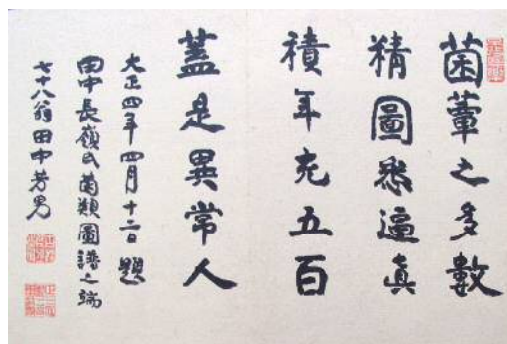 菌蕈之多數
精圖悉逼真
積年充五百
蓋是異常人
大正四年四月十二日題
田中長嶺氏菌類圖譜之端
七十八翁田中芳男